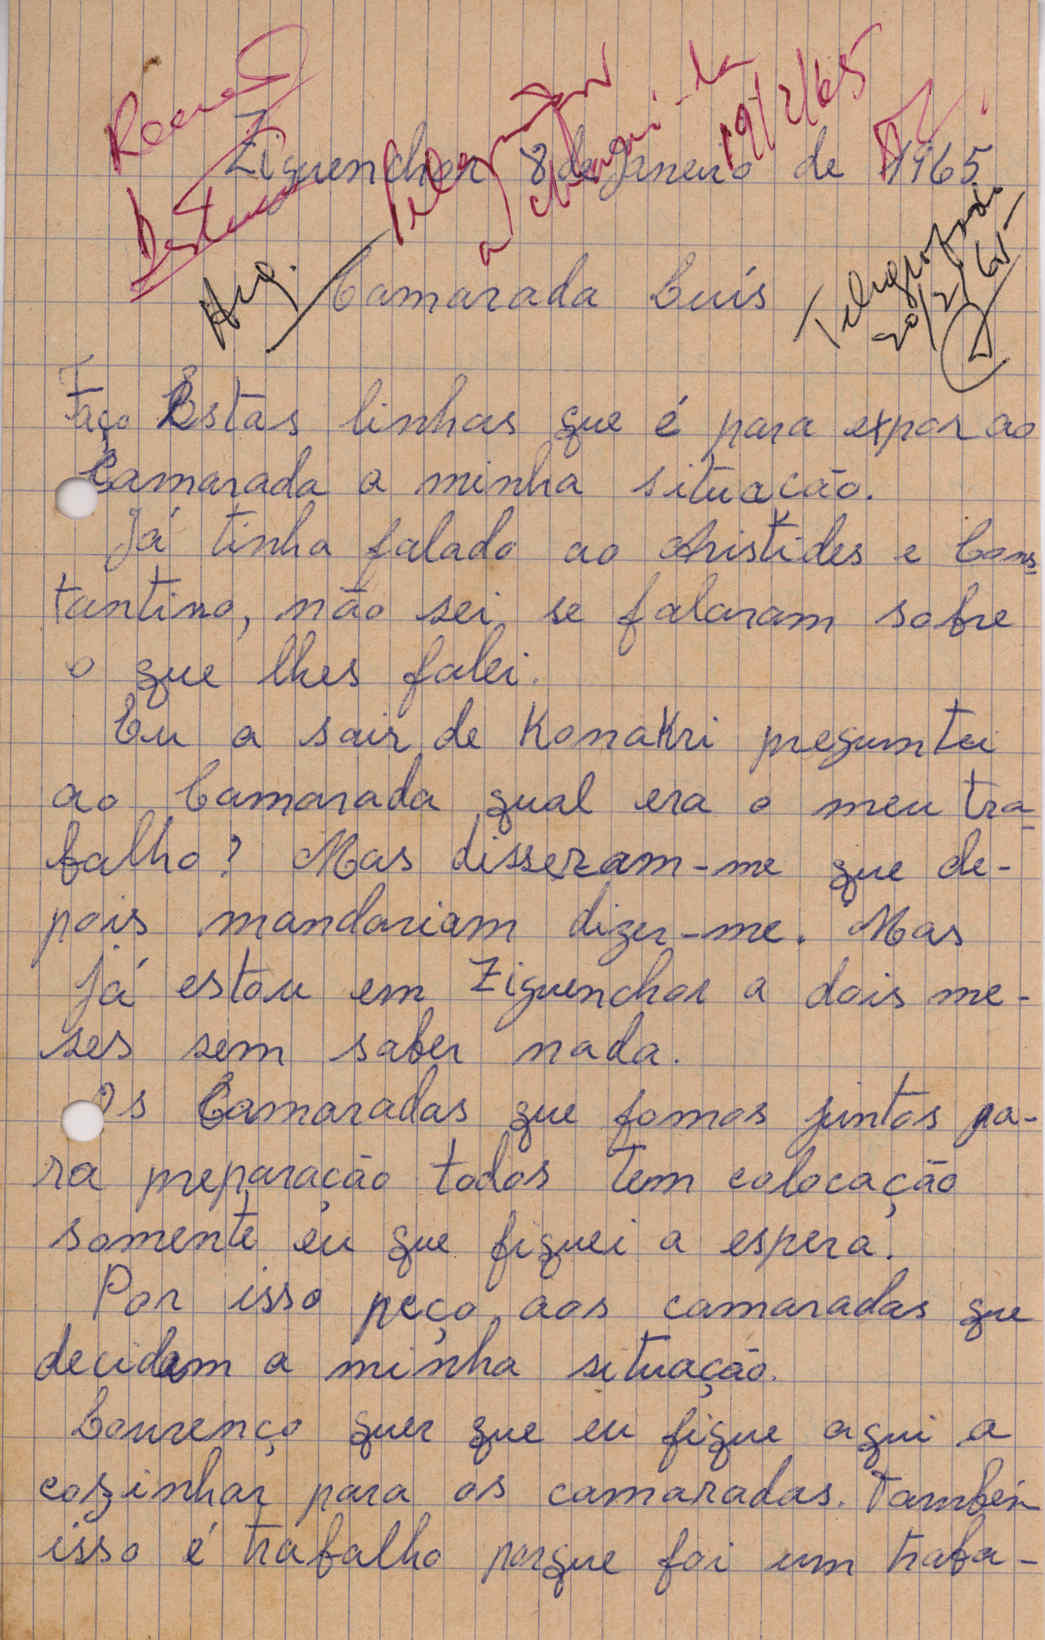 Ziguenchor 8 de Janeiro de 1965
19/2/65
Arq.
Camarada Luís
20/2/65
Faço Estas linhas que é para expor ao
Camarada a minha situação.
Já tinha falado ao Aristides e Cons
tantino, não sei se falaram sobre
o que lhes falei.
Eu a sair de Konakri preguntei
ao Camarada qual era o meu tra-
balho? Mas disseram-me que de-
pois mandariam dizer-me. Mas
já estou em Ziguenchor a dois me-
ses sem saber nada.
Os Camaradas que fomos juntos pa-
ra preparação todos tem colocação
somente eu que fiquei a espera.
Por isso peço aos camaradas que
decidam a minha situação.
Lourenço quer que eu fique aqui a
cozinhar para os camaradas. Também
isso é trabalho porque foi um traba-